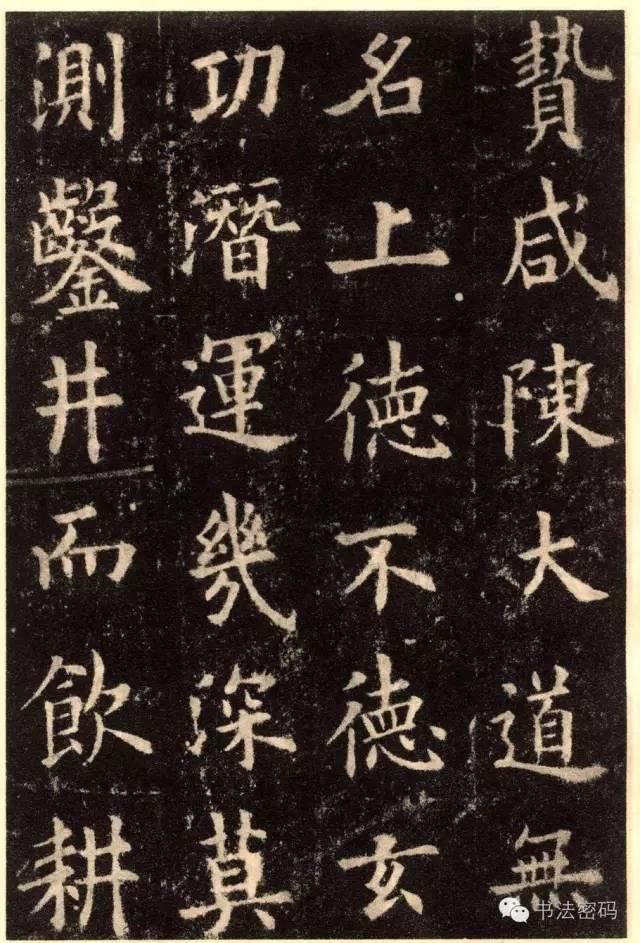 贄咸陳大道無
名上徳不徳玄
功潛運幾深莫
測鑿井而飲耕
书法密码